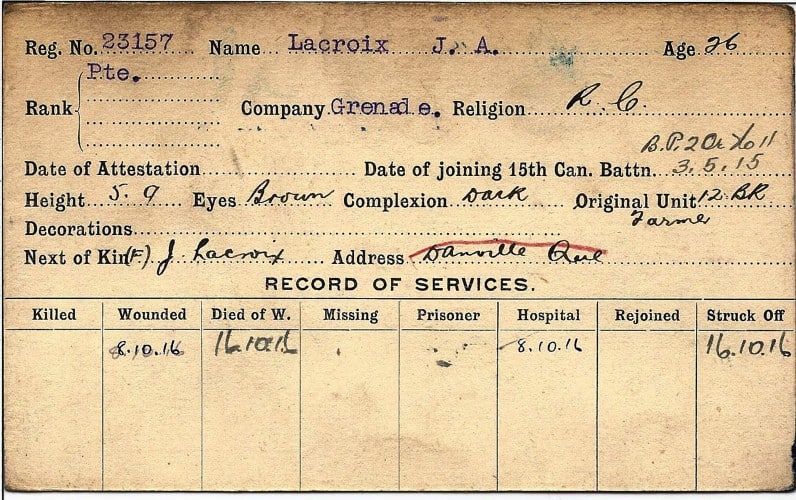 Reg. No. 23157 Name Lacroix J. A. Age 26
Pte.
Rank Company Grenade. Religion R. C.
B.P. 2
Date of Attestation Date of joining 15th Can. Battn. 3.5.15
Height 5. 9 Eyes Brown Complexion Dark Original Unit 12 BR
Farmer
Decorations
Next of Kin (F) J. Lacroix Address Danville Que
RECORD OF SERVICES.
Killed Wounded Died of W. Missing Prisoner Hospital Rejoined Struck Off
8.10.16 16.10.16 8.10.16 16.10.16